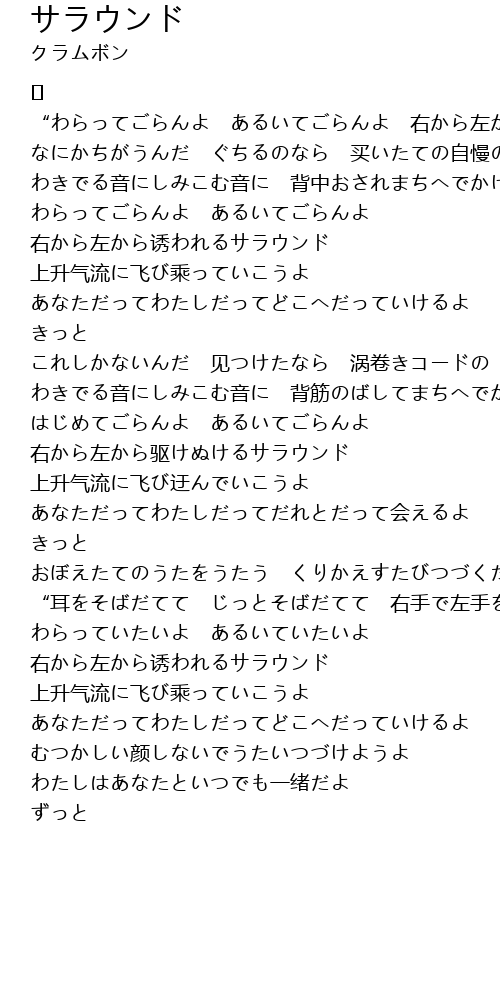 サラウンド
クラムボン
“わらってごらんよ　あるいてごらんよ　右から左か
なにかちがうんだ　ぐちるのなら　买いたての自慢の
わきでる音にしみこむ音に　背中おされまちへでかけ
わらってごらんよ　あるいてごらんよ
右から左から诱われるサラウンド
上升气流に飞び乗っていこうよ
あなただってわたしだってどこへだっていけるよ
きっと
これしかないんだ　见つけたなら　涡卷きコードの
わきでる音にしみこむ音に　背筋のばしてまちへでか
はじめてごらんよ　あるいてごらんよ
右から左から驱けぬけるサラウンド
上升气流に飞び迂んでいこうよ
あなただってわたしだってだれとだって会えるよ
きっと
おぼえたてのうたをうたう　くりかえすたびつづくた
“耳をそばだてて　じっとそばだてて　右手で左手を
わらっていたいよ　あるいていたいよ
右から左から诱われるサラウンド
上升气流に飞び乗っていこうよ
あなただってわたしだってどこへだっていけるよ
むつかしい颜しないでうたいつづけようよ
わたしはあなたといつでも一绪だよ
ずっと